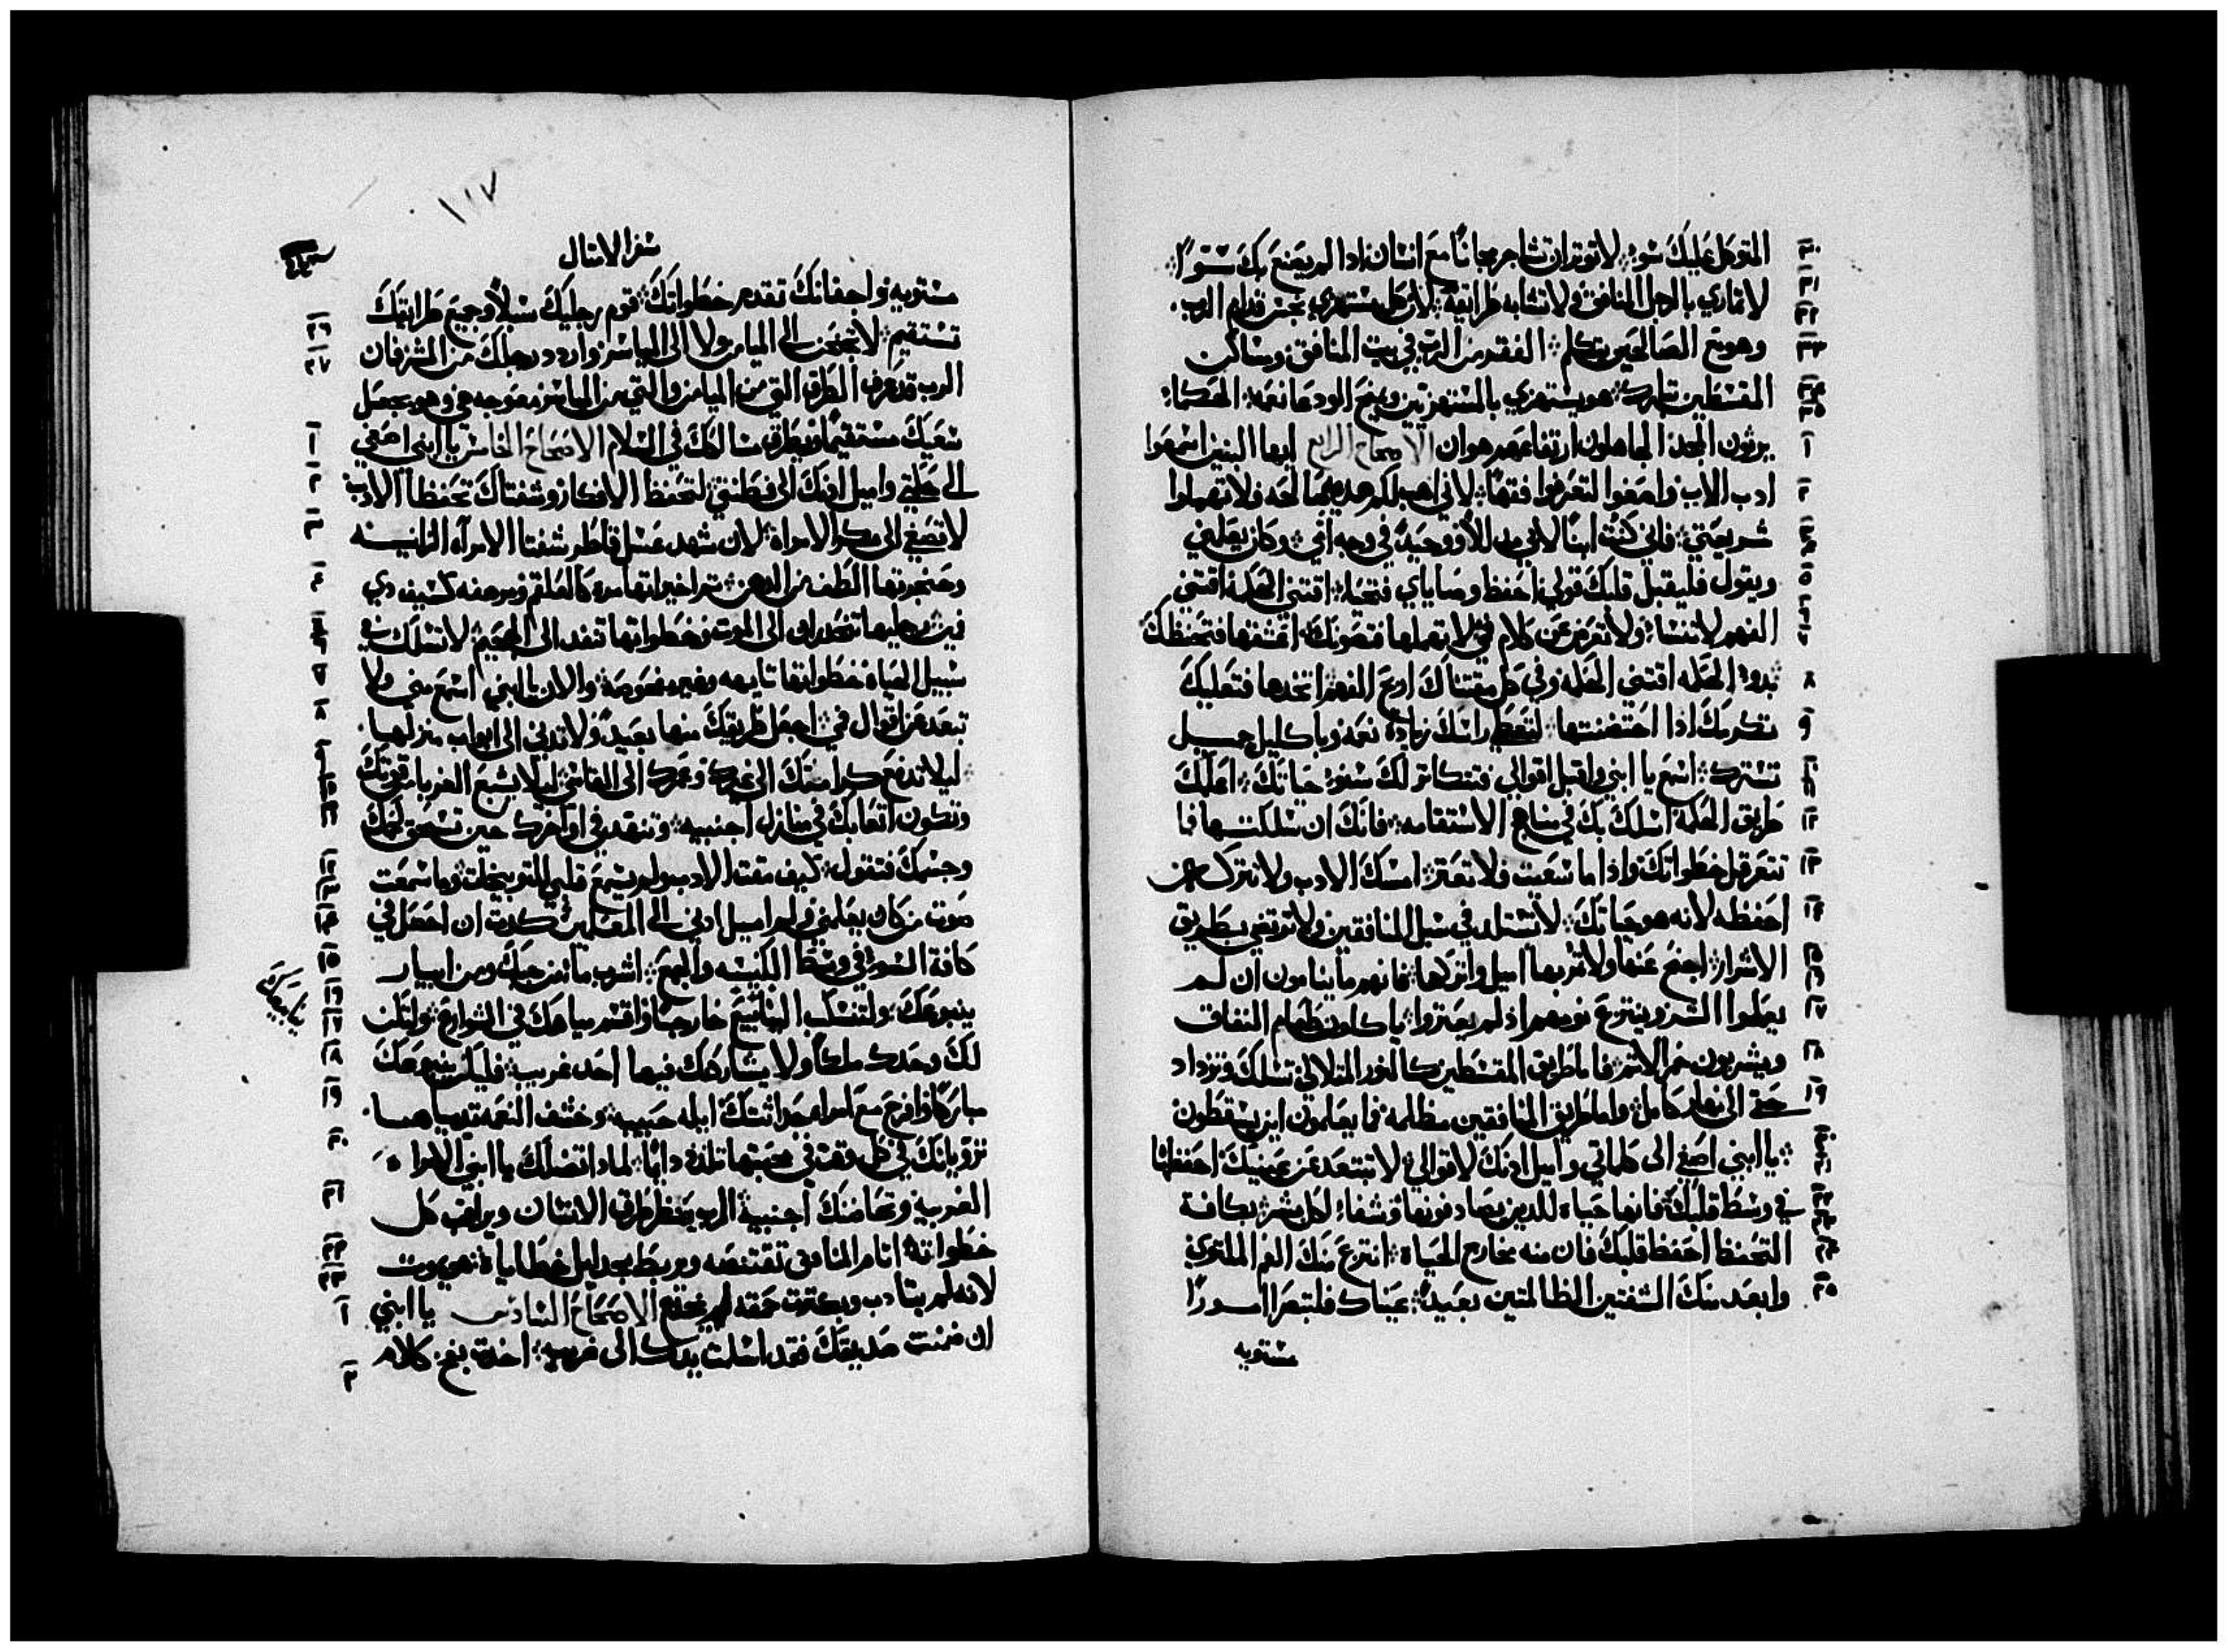 المتوكل عليك سوء لا توتر ان تشاجر مجاناً مع انسان اذا لم يصنع بك سوًا
لا تماري بالرجل المنافق ولا تشابه طرايقه لان كل مستهزي نجس قدام الرب
وهو مع الصالحين يتكلم الفقر من الرب في بيت المنافق ومساكن
المقسطين تبارك هو يستهزي بالمستهزيين ويمنح الودعا نعمه الحكما
يرثون المجد الجاهلون ارتفاعهم هوان الاصحاح الرابع ايها البنين اسمعوا
ادب الاب واصغوا لتعرفوا فهمًا لاني اهب لكم هديه صالحه فلا تهملوا
شريعتي فاني كنت ابنًا لابي مدللاً ووحيدًا في وجه امي وكان يعلمني
ويقول فليقبل قلبك قولي احفظ وصاياي فتحيا اقتني الحكمه اقتني
الفهم لا تنسا ولا تعرض عن كلام فمي لا تهملها فتصونك اعشقها فتحفظك
بدو الحكمه اقتني الحكمه وفي كل مقتناك ادع الفهم اتخدها فتعليك
تكرمك اذا احتضنتها لتعطي راسك زيادة نعمه وباكليل جميل
تسترك اسمع يا ابني واقبل اقوالي فتتكاتر لك سنو حياتك اعلمك
طريق الحكمه اسلك بك في مناهج الاستقامه فانك ان سلكتها فما
تتعرقل خطواتك واذا ما سعيت فلا تعتر امسك الادب ولا تتركه
احفظه لانه هو حياتك لا تستلد في سبل المنافقين ولا ترتضي بطريق
الاشرار اجنح عنها ولا تمر بها اميل واتركها فانهم ما ينامون ان لم
يعملوا الشر وينتزع نومهم اذ لم يعتروا ياكلون طعام النفاق
ويشربون خمر الاتم فاما طريق المقسطين كالنور المتلالي تسلك وتزداد
حتى الى نهار كامل واما طريق المنافقين مظلمه فما يعلمون اين يسقطون
يا ابني اصغي الى كلماتي واميل ادنك لاقوالي لا تبتعد عن عينيك احفظها
في وسط قلبك فانها حياه للدين يصادفونها وشفاء لكل بشر بكافة
التحفظ احفظ قلبك فان منه مخارج الحياة انتزع منك الفم الملتوي
وابعد منك الشفتين الظالمتين بعيداً عيناك فلتبصرا امورًا
مستويه
١١٧
سفر الامتال
مستويه واجفانك تقدم خطواتك قوم رجليك سبلاً وجميع طرايقك
تستقيم لا تجنحن الى الميامن ولا الى المياسر واردد رجلك من الشر فان
الرب قد عرف الطرق التي من الميامن والتي من المياسر معوجه هي وهو يجعل
سعيك مستقيمًا ويطرق مسالكك في السلام الاصحاح الخامس يا ابني اصغي
الى حكمتي واميل ادنك الى فطنتي لتحفظ الافكار وشفتاك تحفظا الادب
لا تصغي الى مكر الامراة لان شهد عسل قاطر شفتا الامرآه الزانيه
وحنجرتها الطف من الدهن تم اخيراتها مره كالعلقم ومرهفه كسيف دي
فمين رجليها تنحدران الى الموت وخطواتها تنفد الى الجحيم لا تسلك في
سبيل الحياه خطواتها تايهه وغير مفحوصة والان يا ابني اسمع مني ولا
تبعد عن اقوال فمي اجعل طريقك منها بعيدًا ولا تدني الى ابواب منزلها
ليلا تدفع كرامتك الى غيرك وعمرك الى القاسي ليلا يشبع الغربا من قوتك
وتكون اتعابك في منازل اجنبيه وتتنهد في اواخرك حين تسحق لحمك
وجسمك فتقول كيف مقت الادب ولم يسمع قلبي للتوبيخات وما سمعت
صوت من كان يعلمني ولم اميل ادني الى المعلمين كدت ان احصل في
كافة السوء في وسط الكنيسه والجمع اشرب ما من جبك ومن ابيار
ينبوعك ولتنسكب الينابيع خارجًا واقسم مياهك في الشوارع ولتكن
لك وحدك ملكًا ولا يشاركك فيها احد غريب فليكن ينبوعك
مباركًا وافرح مع امراه حداثتك ايله حبيبه وخشف النعمه تدياهما
ترويانك في كل وقت في محبتها تلذذ دايمًا لمادا تضلك يا ابني الامراه
الغريبه وتحاضنك اجنبية الرب ينظر طرق الانسان ويراقب كل
خطواته اتام المنافق تقتنصه ويربط بحبايل خطاياه هو يموت
لانه لم يتادب وبكترت حمقه يخدع الاصحاح السادس يا ابني
ان ضمنت صديقك فقد اسلمت يدك الى غريب اخدت بفخ كلام